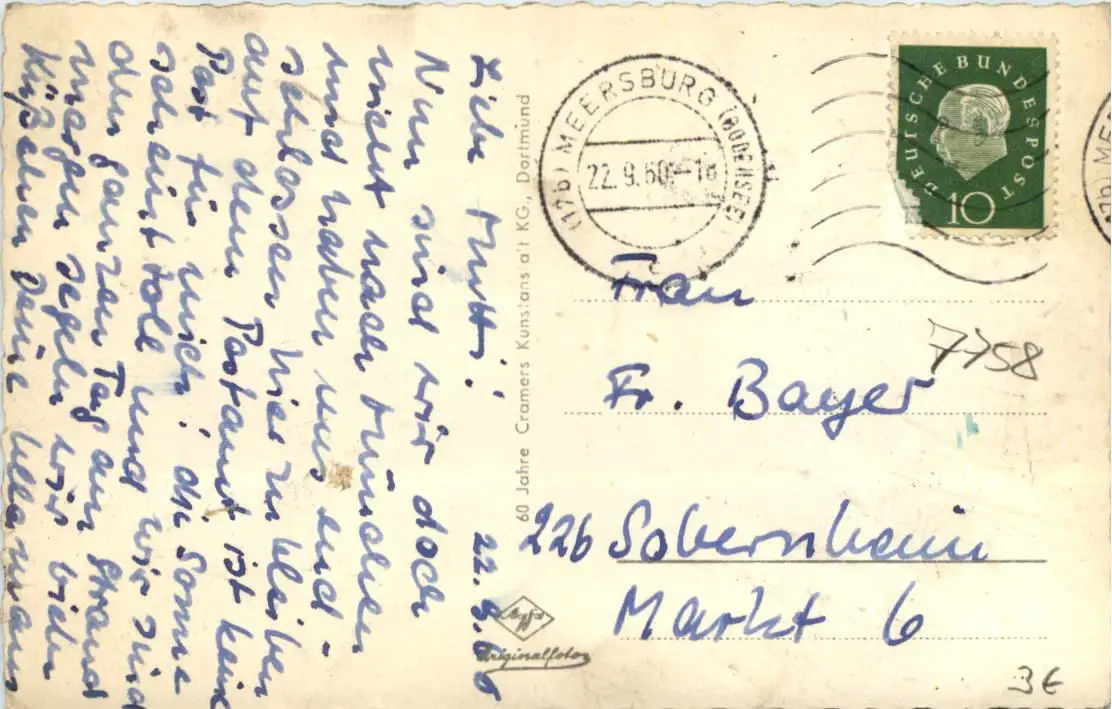 Liebe Mutti! 22.9.60
Nun sind wir doch
nicht nach München
und haben uns end-
schlossen hier zu bleiben
auf dem Postamt ist keine
Post für mich! die Sonne
scheint toll und wir sind
den ganzen Tag am Strand
morgen segeln wir
Küßchen Deine
60 Jahre Cramers Kunstanstalt KG, Dortmund
Agfa
Originalfoto
(17b) MEERSBURG (BODENSEE)
22.9.60-18
DEUTSCHE BUNDESPOST
10
(17b) ME
Frau
Fr. Bayer
7758
22b Sobernheim
Markt 6
3€